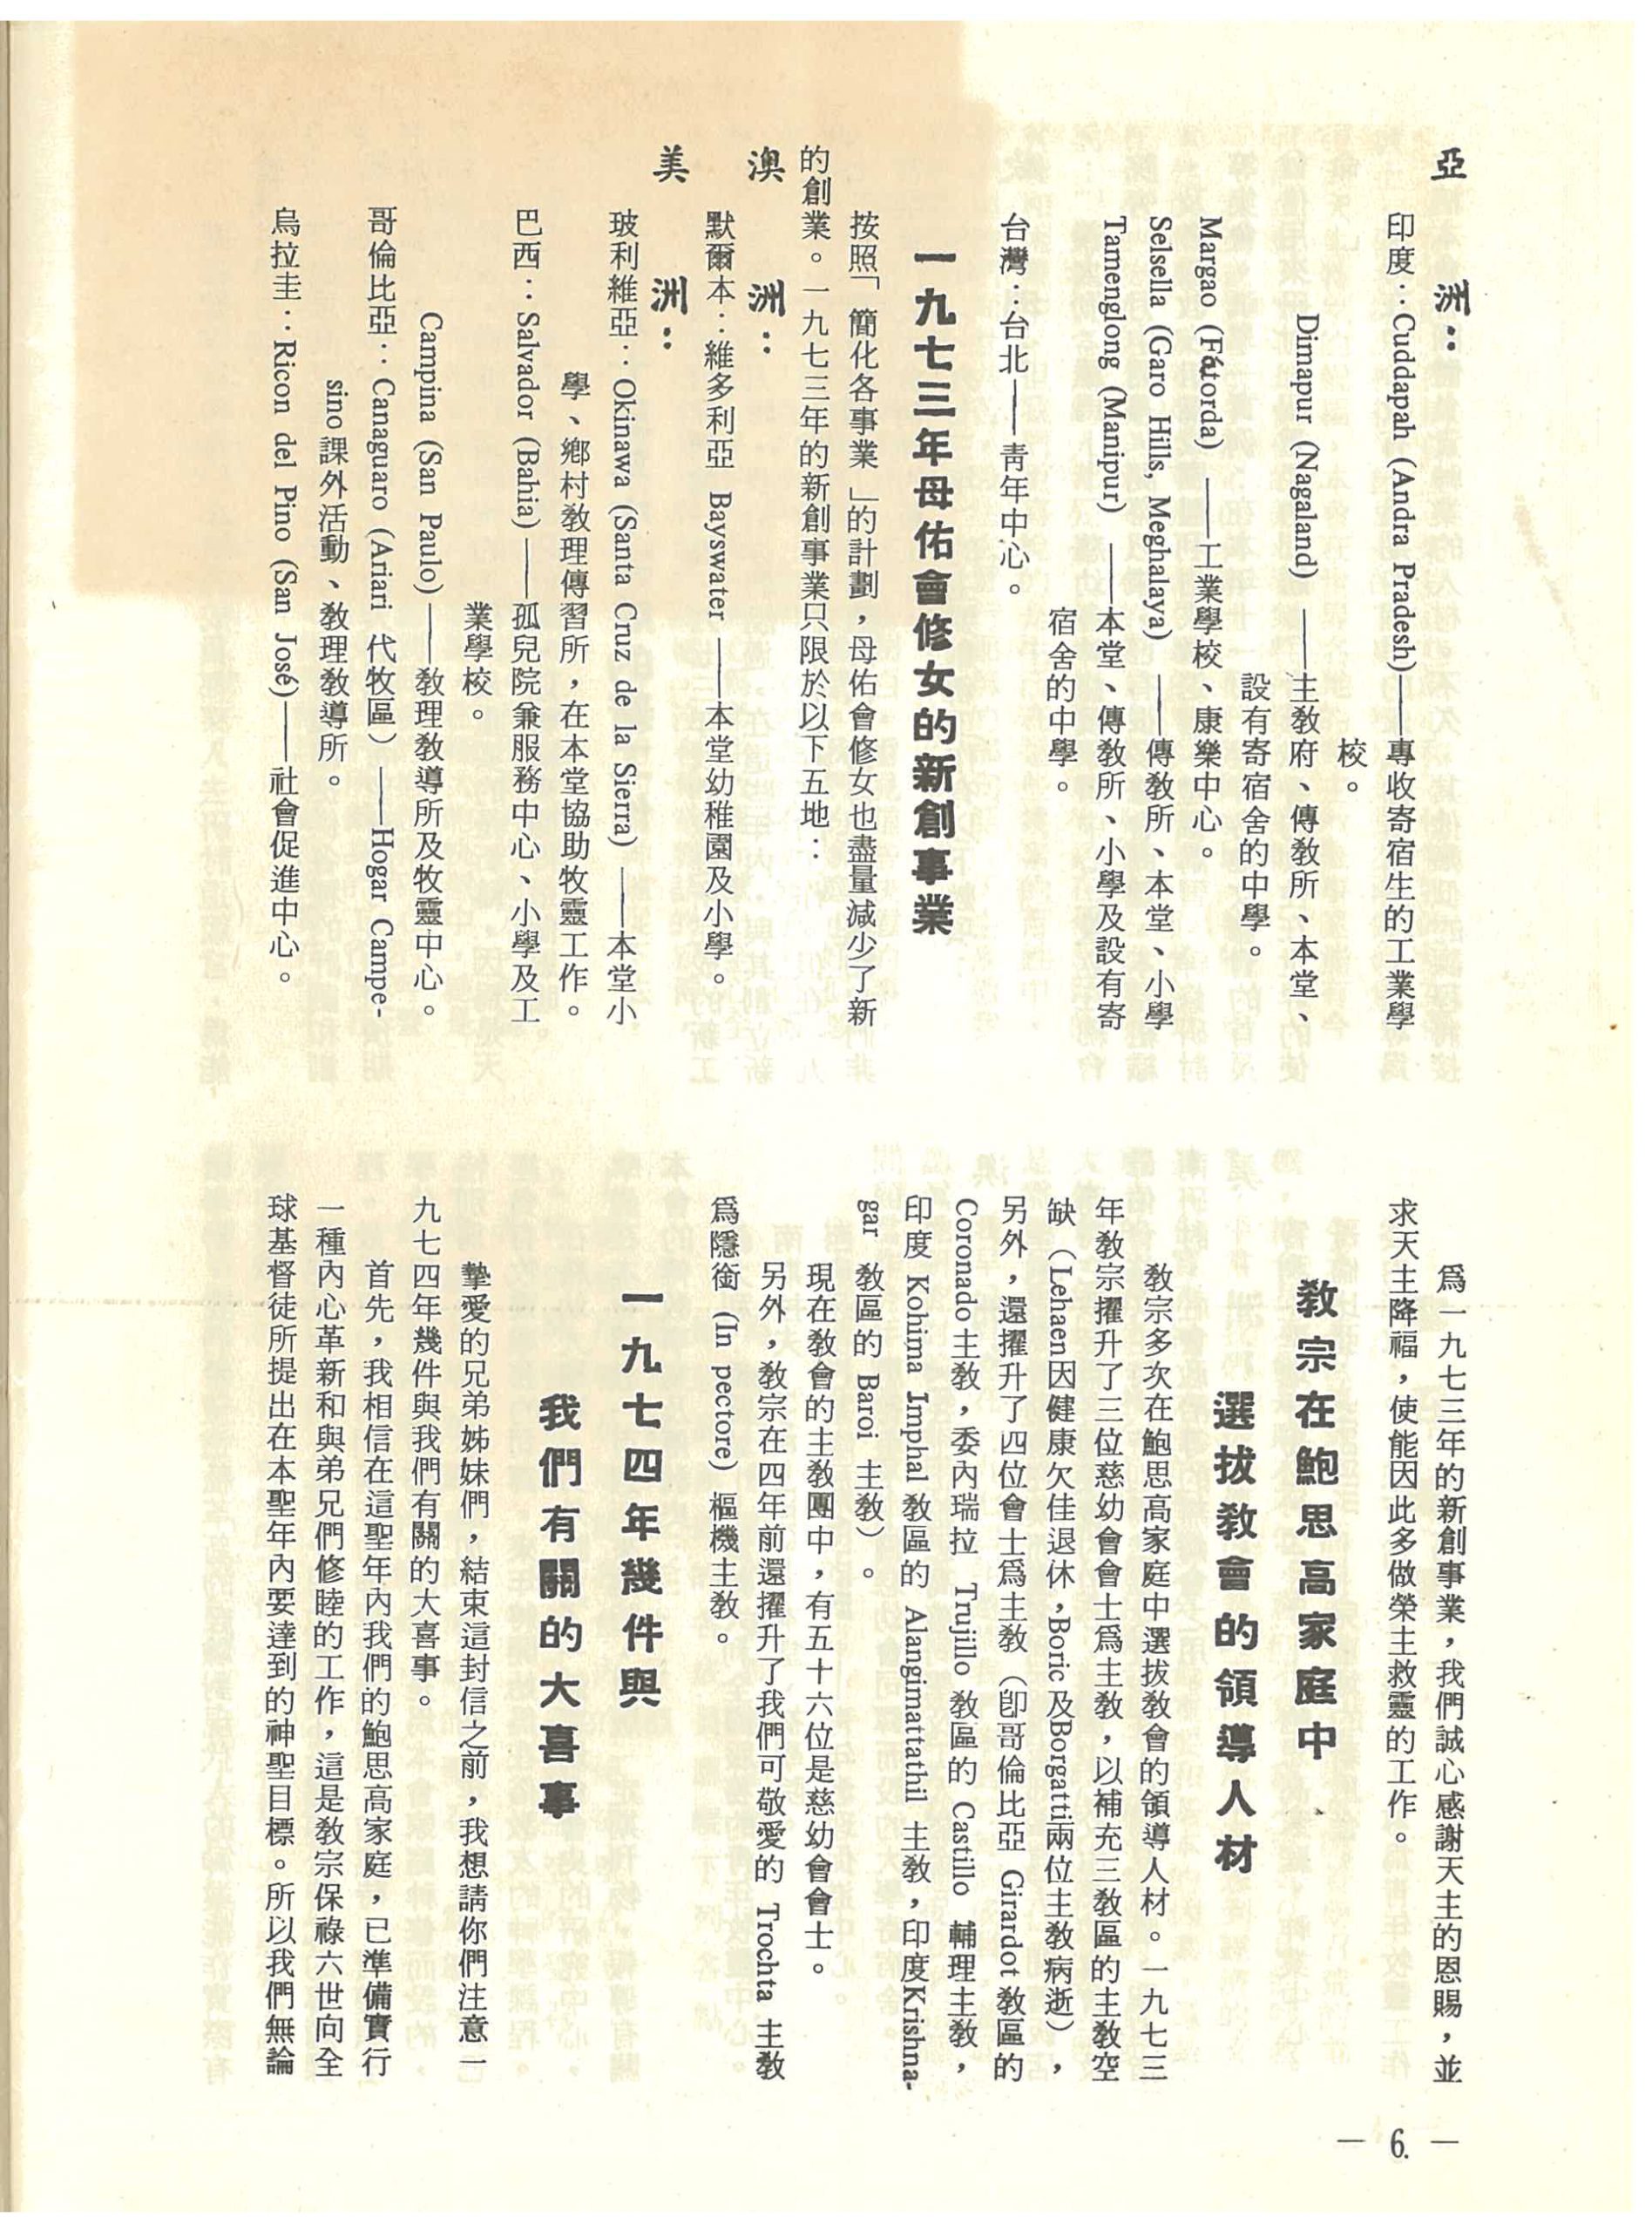 亞洲：
印度：Cuddapah (Andra Pradesh)——專收寄宿生的工業學
校。
Dimapur (Nagaland) ——主教府、傳教所、本堂、
設有寄宿舍的中學。
Margao (Fátorda) ——工業學校、康樂中心。
Selsella (Garo Hills, Meghalaya) ——傳教所、本堂、小學
Tamenglong (Manipur) ——本堂、傳教所、小學及設有寄
宿舍的中學。
台灣：台北——青年中心。
一九七三年母佑會修女的新創事業
按照「簡化各事業」的計劃，母佑會修女也盡量減少了新
的創業。一九七三年的新創事業只限於以下五地：
澳洲：
默爾本：維多利亞 Bayswater ——本堂幼稚園及小學。
美洲：
玻利維亞：Okinawa (Santa Cruz de la Sierra) ——本堂小
學、鄉村教理傳習所，在本堂協助牧靈工作。
巴西：Salvador (Bahia)——孤兒院兼服務中心、小學及工
業學校。
Campina (San Paulo)——教理教導所及牧靈中心。
哥倫比亞：Canaguaro (Ariari 代牧區) ——Hogar Campe-
sino 課外活動、教理教導所。
烏拉圭：Ricon del Pino (San José)——社會促進中心。
爲一九七三年的新創事業，我們誠心感謝天主的恩賜，並
求天主降福，使能因此多做榮主救靈的工作。
教宗在鮑思高家庭中
選拔教會的領導人材
教宗多次在鮑思高家庭中選拔教會的領導人材。一九七三
年教宗擢升了三位慈幼會會士爲主教，以補充三教區的主教空
缺（Lehaen因健康欠佳退休，Boric及Borgatti兩位主教病逝），
另外，還擢升了四位會士爲主教（卽哥倫比亞 Girardot 教區的
Coronado主教，委內瑞拉 Trujillo 教區的 Castillo 輔理主教，
印度 Kohima Imphal 教區的 Alangimattathil 主教，印度Krishna-
gar 教區的 Baroi 主教）。
現在教會的主教團中，有五十六位是慈幼會會士。
另外，教宗在四年前還擢升了我們可敬愛的 Trochta 主教
爲隱銜 (In pectore) 樞機主教。
一九七四年幾件與
我們有關的大喜事
摯愛的兄弟姊妹們，結束這封信之前，我想請你們注意一
九七四年幾件與我們有關的大喜事。
首先，我相信在這聖年內我們的鮑思高家庭，已準備實行
一種內心革新和與弟兄們修睦的工作，這是教宗保祿六世向全
球基督徒所提出在本聖年內要達到的神聖目標。所以我們無論
— 6. —